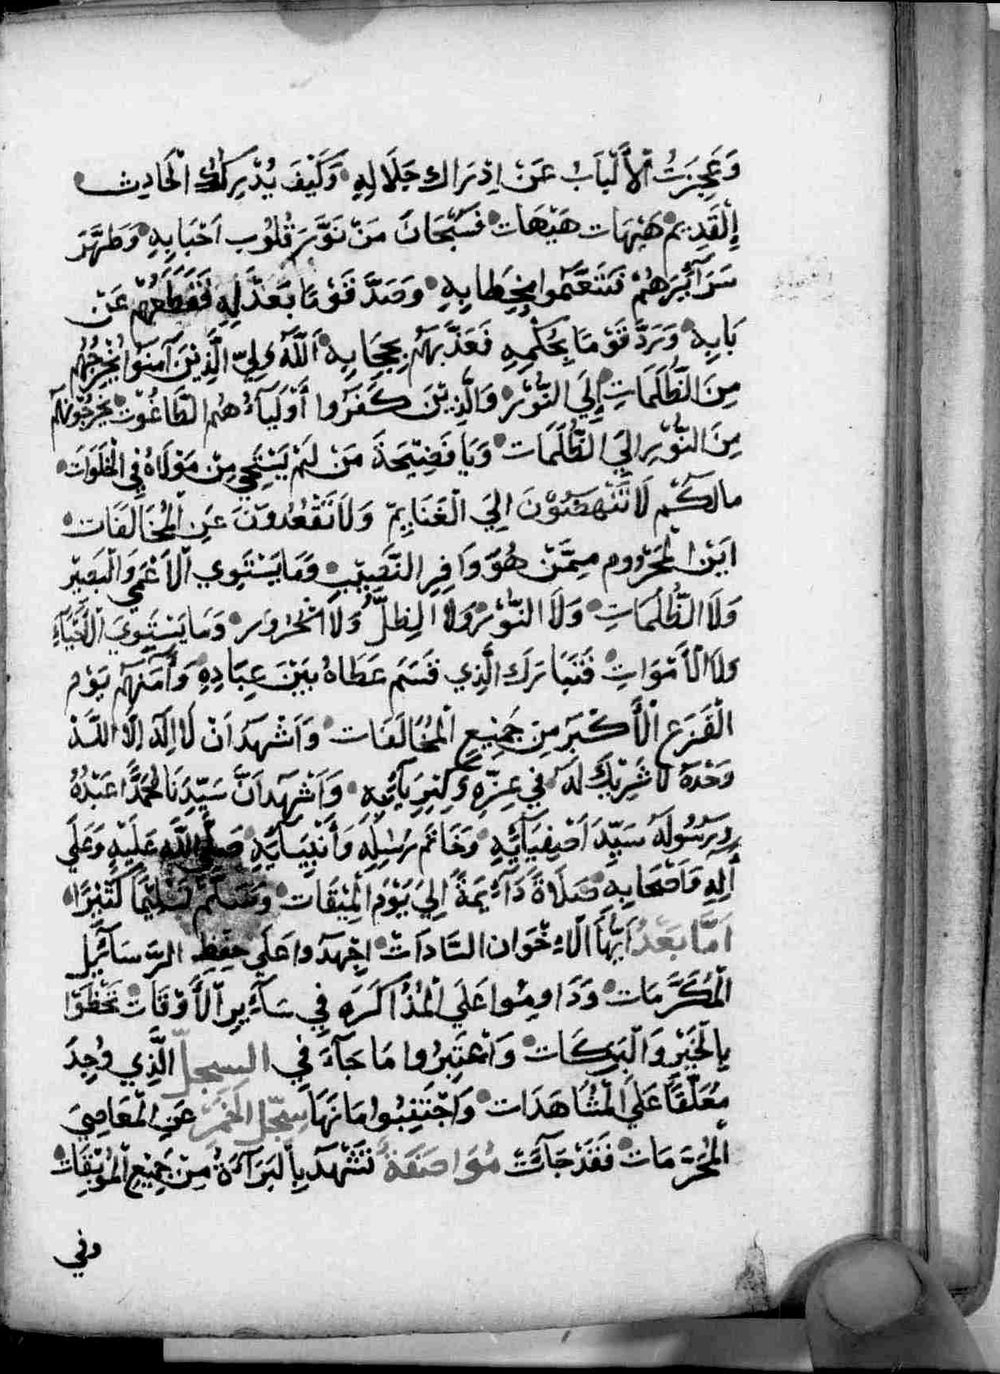 وَعَجِزَتْ الْأَلْبَابُ عَنْ اِدْرَاك جَلَالِهِ وَكَيْفَ يُدْرِكُ الْحَادِث
اِلْقَدِيم هَيْهَات هَيْهَات فَسُبْحَانَ مَنْ نَوَّرَ قُلُوب اَحْبَابِهِ وَطَهَّرَ
سَرَآئِرَهُمْ فَتَنَعَّمُوا بِخِطَابِهِ وَصَدَّ قَوْمًا بَعَدْلِهِ فَقَطَعَهُمْ عَنْ
بَابِهِ وَرَدَّ قَوْمًا بِحُكْمِهِ فَعَذَّبَهُم بِحِجَابِهِ اَللّٰه وَلِيّ الَّذِيْنَ آمَنُوا يُخْرِجُهُم
مِنَ الظُّلُمَاتِ اِلَي النُّوْر وَالَّذِيْنَ كَفَرُوا أَوْلِيَآءُ هُمُ الطَّاغُوْت يُخْرِجُوْنَهُم
مِنَ النُّوْرِ اِلَي الظُّلُمَات وَيَا فَضِيْحَةَ مَنْ لَمْ يَسْتَحِي مِنْ مَوْلَاهُ فِي الْخَلَوَات
مالكُم لَا تَنْهَضُوْنَ اِلَي الْغَنَايِمْ وَلَا تَقْعُدُوْنَ عَنِ الْمُخَالَفَات
اَيْنَ الْمَحْرُوم مِمَّنْ هُوَ وَافِرِ النَّصِيْبِ وَمَا يَسْتَوِي الْأَعْمَي وَالْبَصِيْر
وَلَا الظُّلُمَاتِ وَلَا النُّوْر وَلَا الظِّلُّ وَلَا الْحَرُوْر وَمَا يَسْتَوِيَ الْأَحْيَآءِ
وَلَا الْأَمْوَاتِ فَتَبَارَك الَّذِي قَسَمَ عَطَاهُ بَيْنَ عِبَادِهِ وَأَمَنَهُم يَوْم
الْفَزَع الْأَكْبَر مِن جَمِيْعِ الْمُخَالَفَات وَاَشْهَدُ اَنْ لَا اِلَه اِلَّا اللّٰه
وَحْدَهُ لَا شَرِيْكَ لَهُ فِي عِزِّهِ وَكِبْرِيَآئِهِ وَاَشْهَدُ اَنَّ سَيِّدِنَا مُحَمَّدًا عَبْدُهُ
وَرَسُولَهُ سَيِّدِ اَصْفِيَآئِهِ وَخَاتَم رُسُلِهِ وَأَنْبِيَآئِهِ صَلَّي اللّٰه عَلَيْهِ وَعَلَي
آلِهِ وَاَصْحَابِهِ صَلَاةً دَآئِمَةً اِلَيَ يَوْمِ الْمِيْقَات وَسَلِّمْ تَسْلِيْمًا كَثِيْرًا
اَمَّا بَعْدُ اَيُّهَا الْاِخْوَان السَّادَاتْ اِجْهَدُوا عَلَي حِفْظ الرَّسَآئِل
الْمُكَرَّمَات وَدَاوِمُوا عَلَي الْمُذَاكَرَه فِي سَآئِرِ الْأَوْقَات تَحْظَوْا
بِالْخَيْرِ وَالْبَرَكَات وَاعْتَبِرُوا مَا جَآءَ فِي السجلّ الَّذِي وُجِدَ
مُعَلَّقًا عَلَي الْمُشَاهَدَات وَاجْتَنِبُوا مَا نَهَا سِجِّل الْخَمْر عَنِ الْمَعَاصِيَ
الْمُحَرَّمَات فَقَدْ جَآئَتْ مُوَاصَفَةً تَشْهَد بِالْبَرَآءَةُ مِنْ جَمِيْعِ الْمُوْبِقَات
وفي